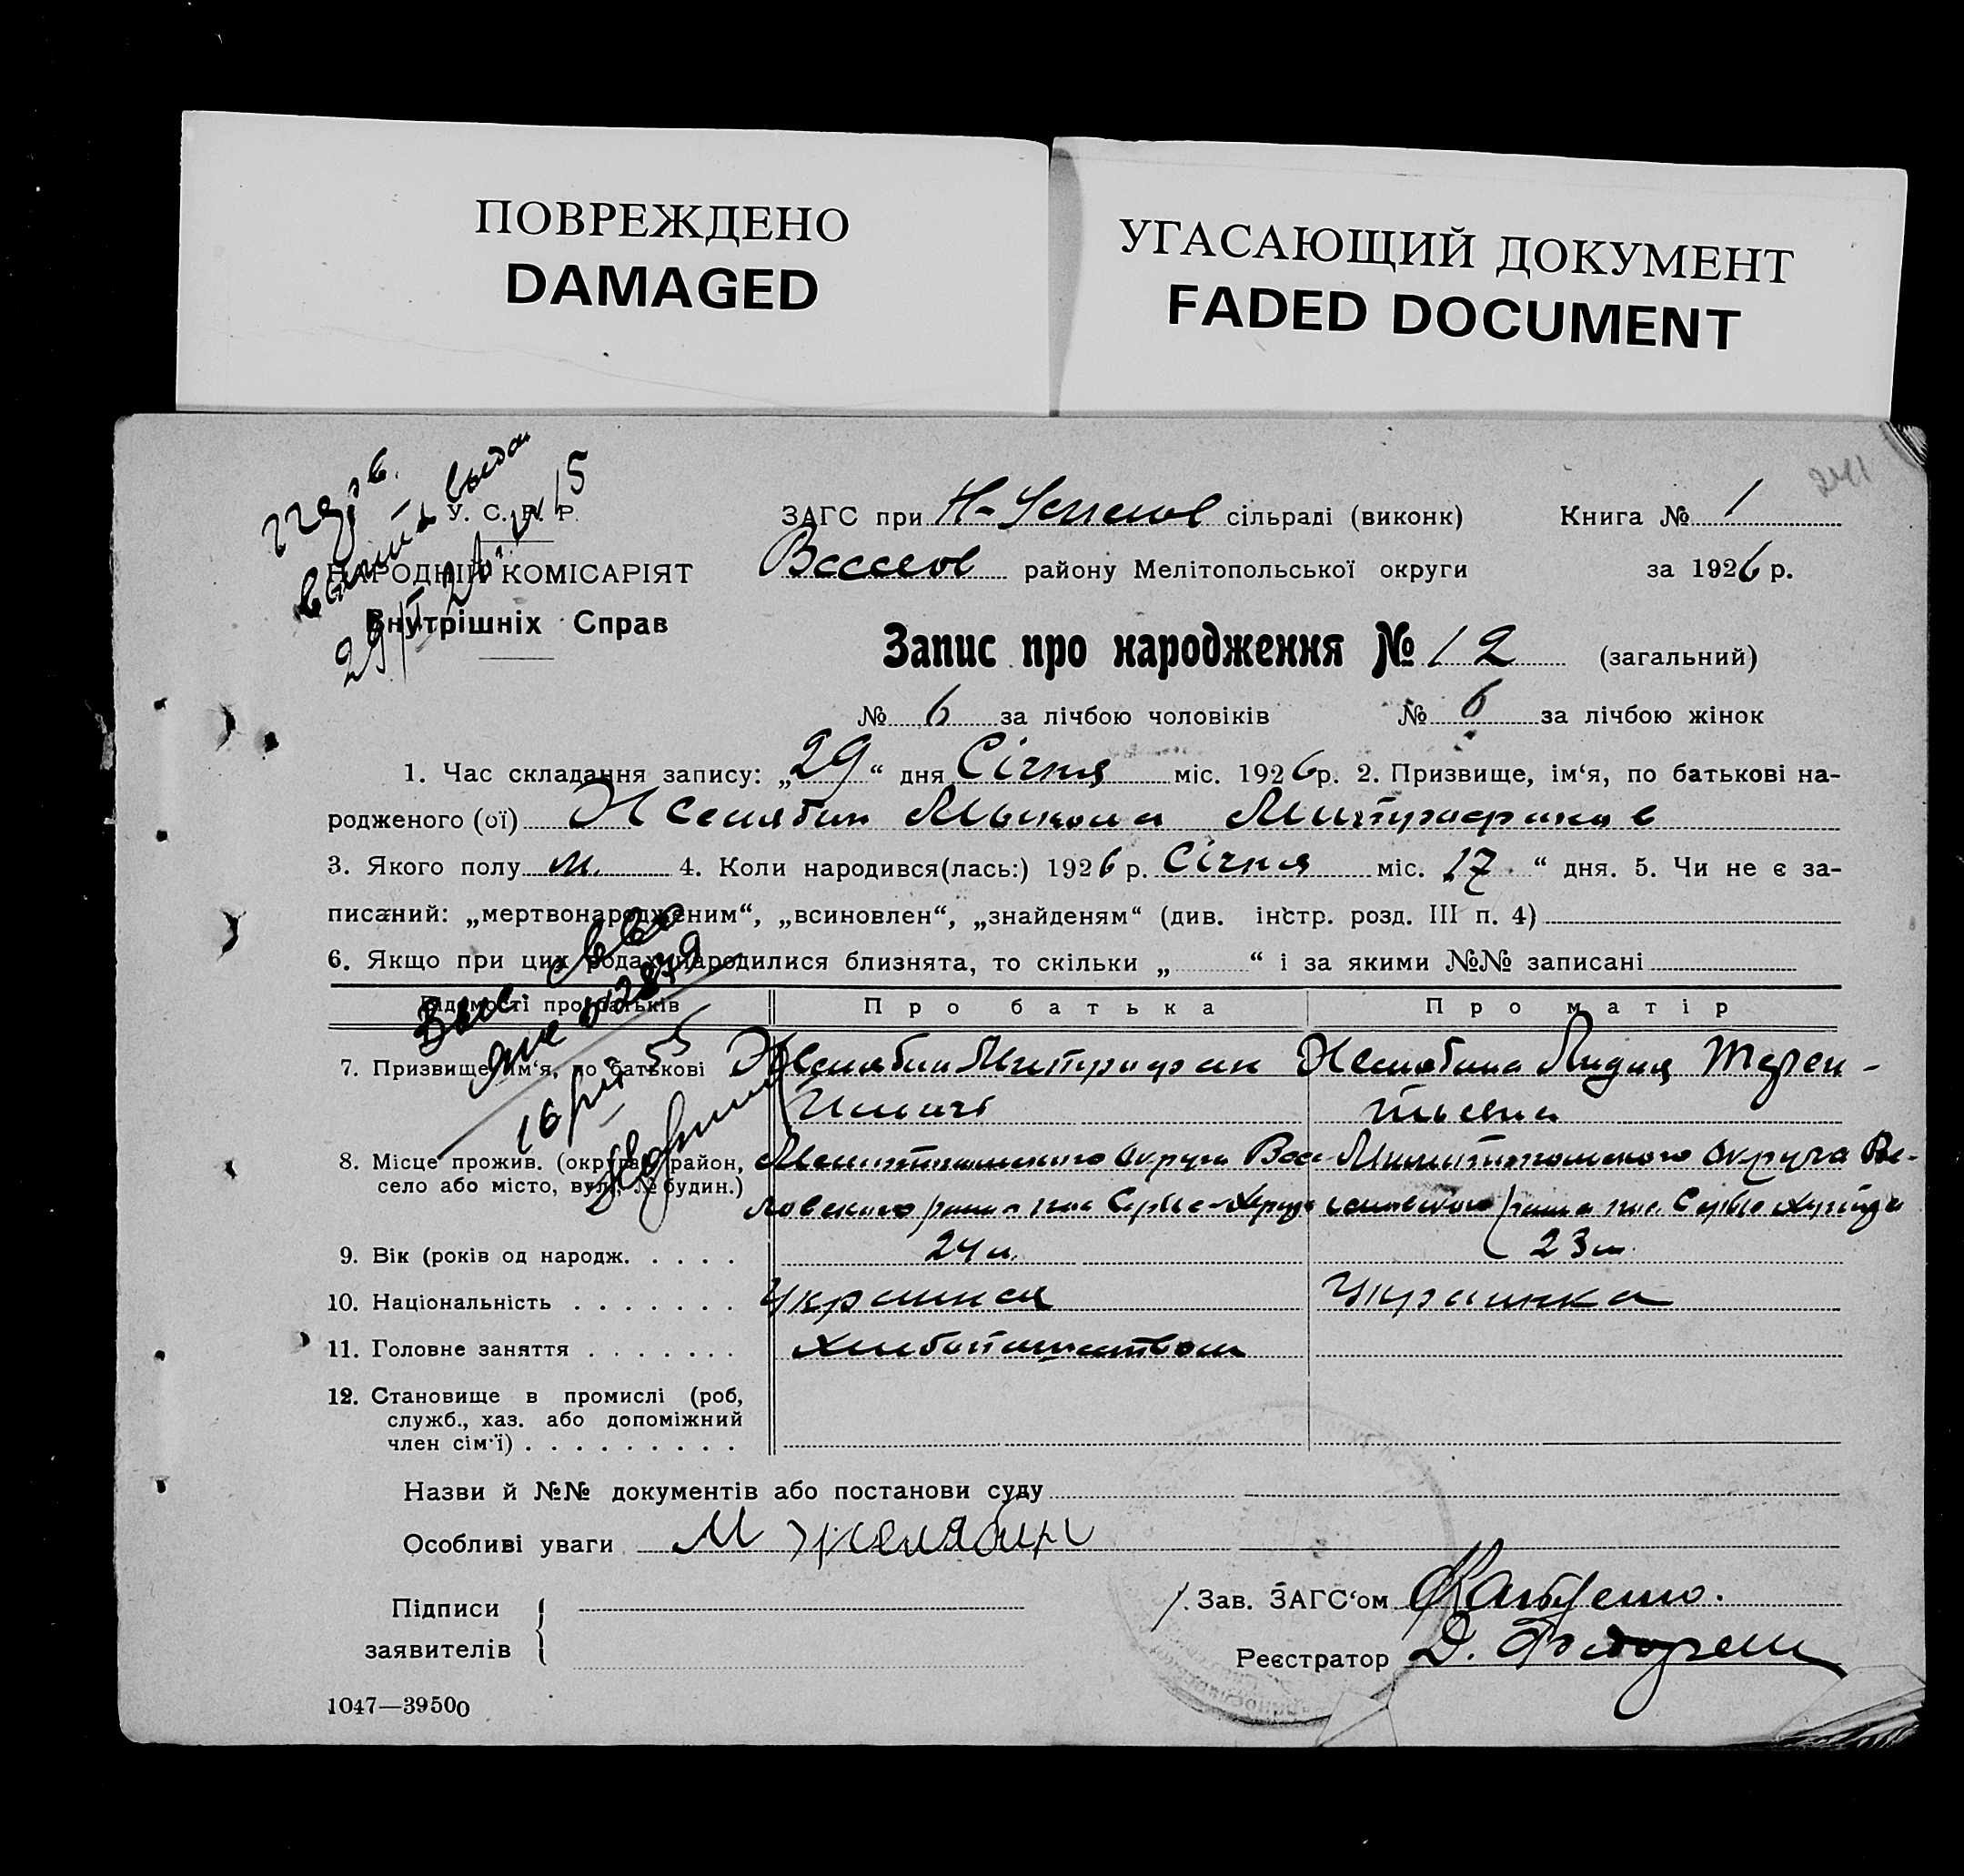 ПОВРЕЖДЕНО
DAMAGED
УГАСАЮЩИЙ ДОКУМЕНТ
FADED DOCUMENT
У. С. Р. Р.
НАРОДНІЙ КОМІСАРІЯТ
Внутрішніх Справ
ЗАГС при Н-Успенов сільраді (виконк) Книга № 1
Веселов району Мелітопольської округи за 1926 р.
Запис про народження № 12 (загальний)
№ 6 за лічбою чоловіків № 6 за лічбою жінок
1. Час складання запису: „29“ дня Січня міс. 1926 р. 2. Призвище, ім‘я, по батькові на-
родженого (ої) Желябин Микола Митрофанов
3. Якого полу м. 4. Коли народився(лась:) 1926 р. Січня міс. 17 “ дня. 5. Чи не є за-
писаний: „мертвонародженим“, „всиновлен“, „знайденям“ (див. інстр. розд. III п. 4)
6. Якщо при цих родах народилися близнята, то скільки „ “ і за якими №№ записані
Відомості про батьків Про батька Про матір
7. Призвище, ім‘я, по батькові Желябин Митрофан Желябина Лидия Терен-
Ильич тьевна
8. Місце прожив. (округа, район, Мелитопольского Округа Весе- Мелитопольского Округа Ве-
село або місто, вул., № будин.) ловского района
9. Вік (років од народж. . . . . 24 л. 23 л.
10. Національність . . . . . . . Украинец Украинка
11. Головне заняття . . . . . . . хлебопашеством
12. Становище в промислі (роб,
служб., хаз. або допоміжний
член сім‘ї) . . . . . . . . .
Назви й №№ документів або постанови суду
Особливі уваги М Желябин
Підписи
заявителів
Зав. ЗАГС‘ом
Реєстратор Д.
1047—39500